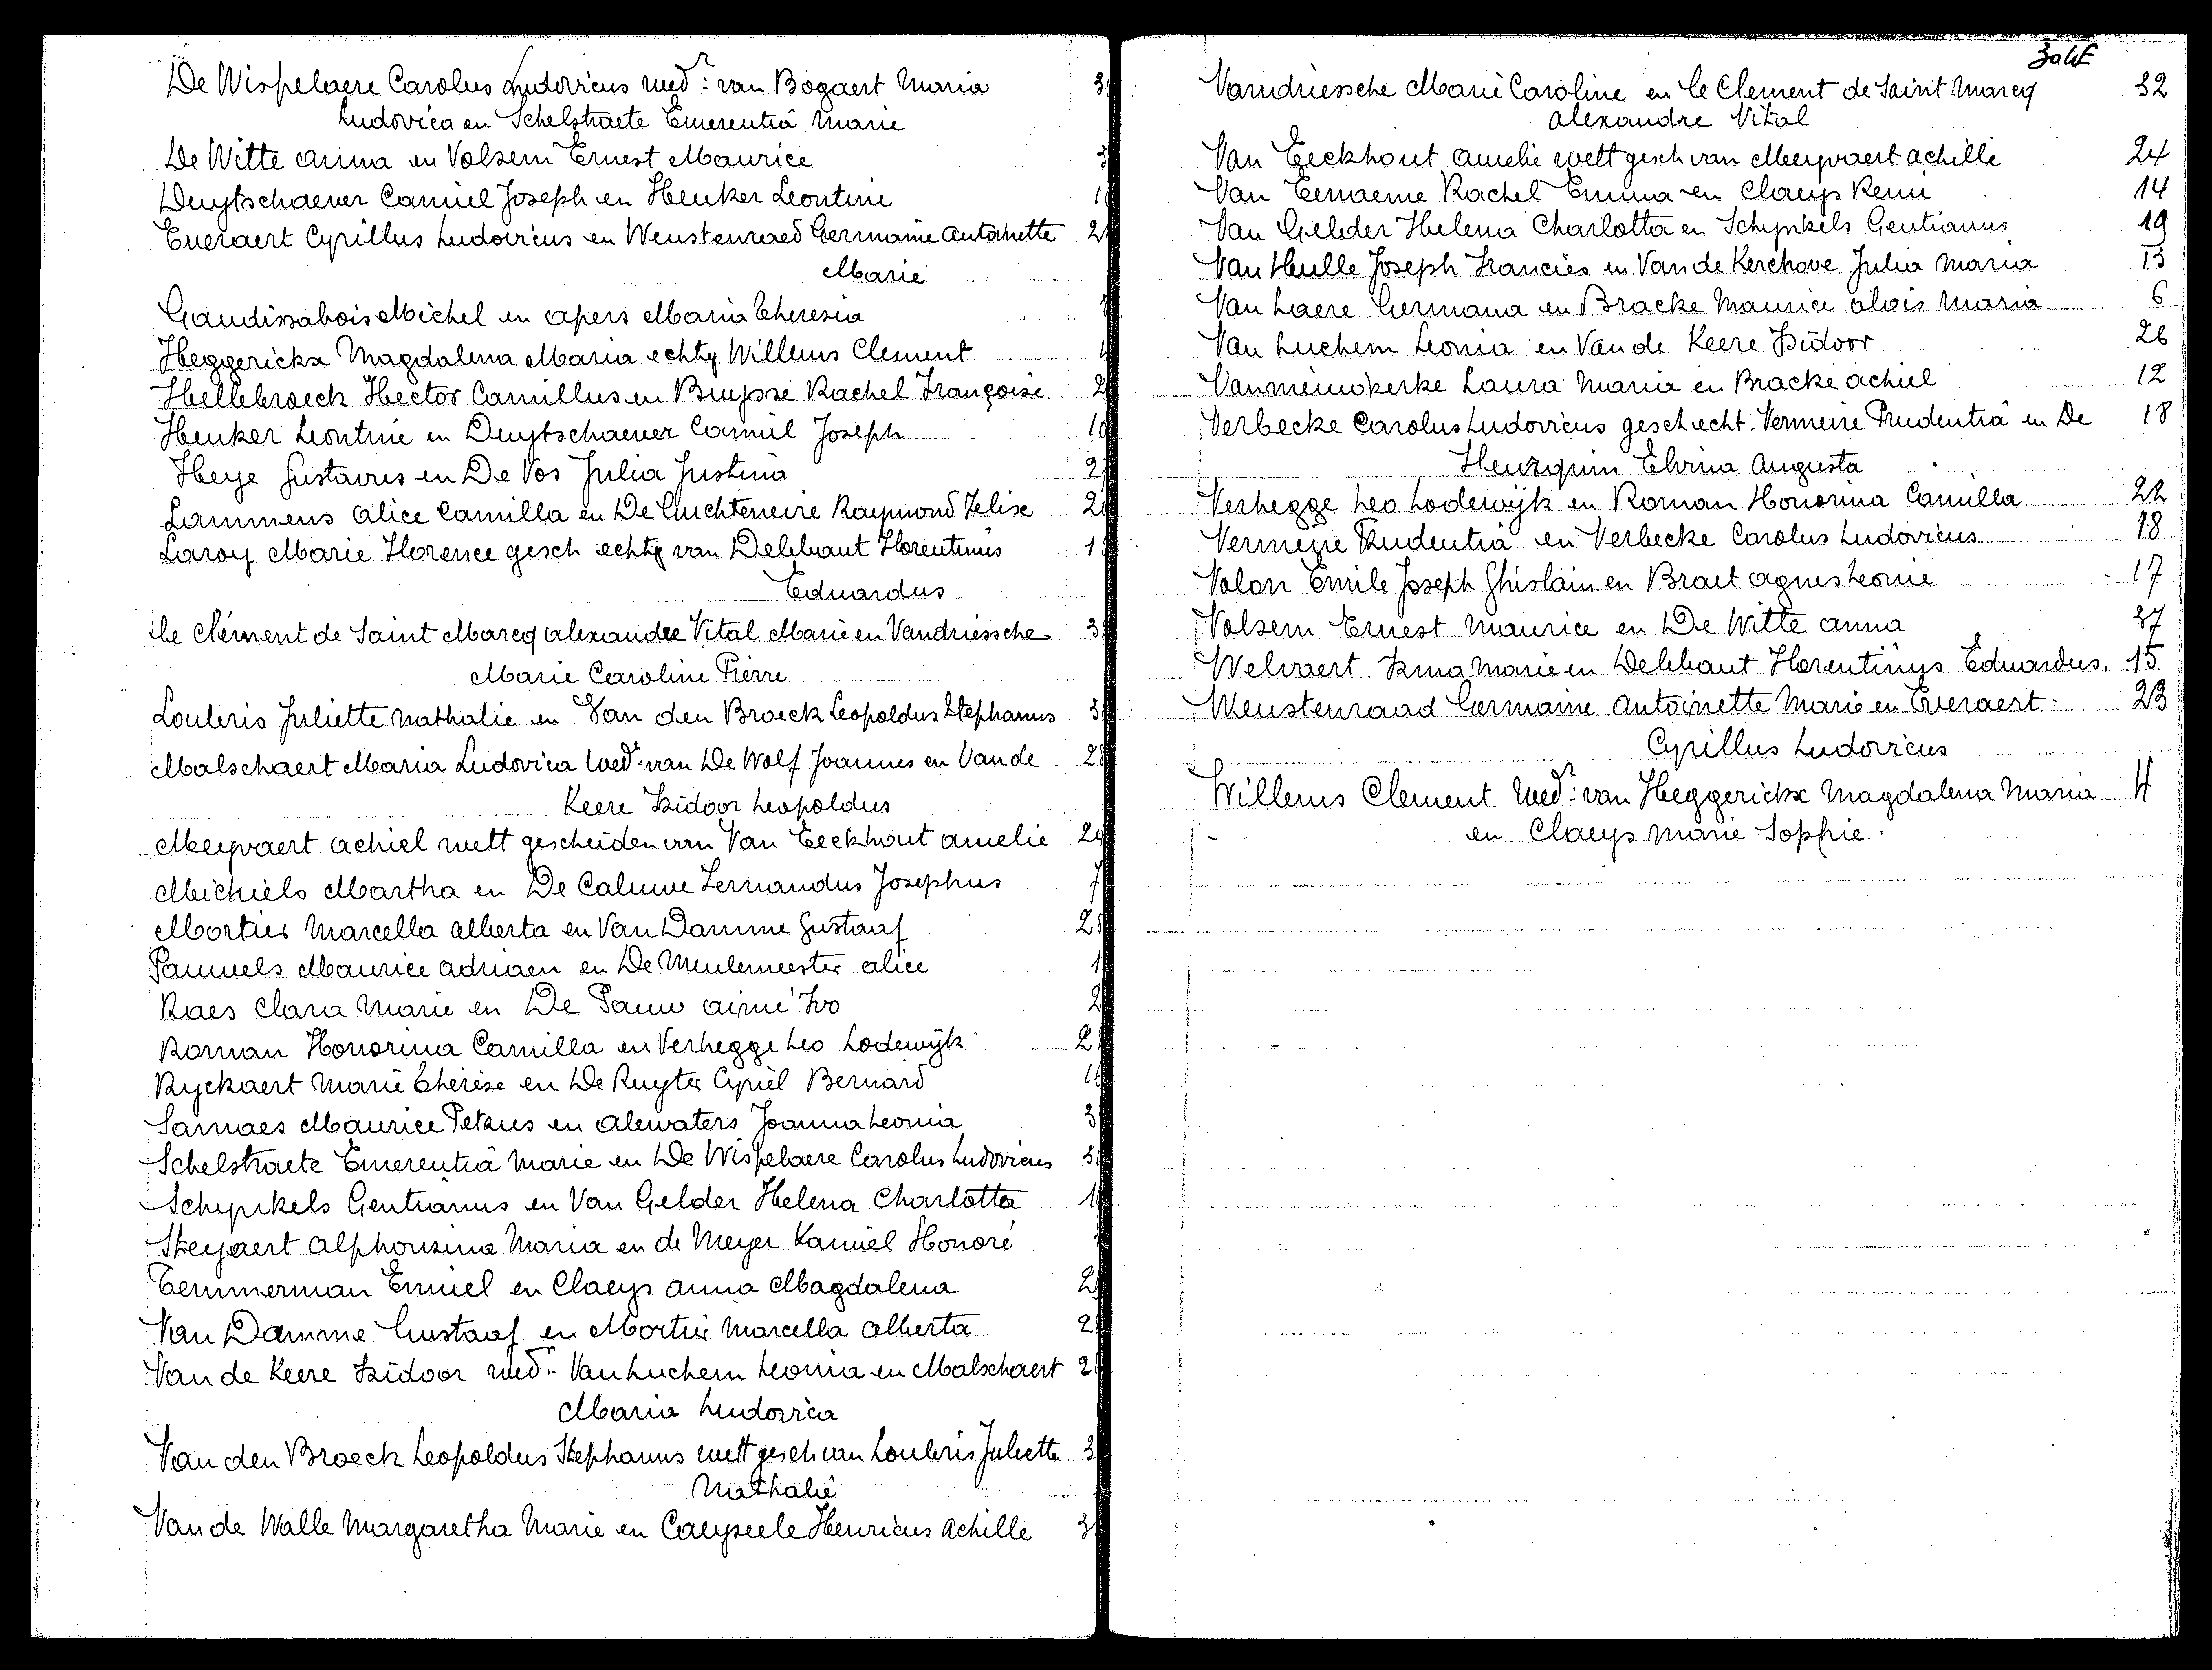 De Wispelaere Carolus Ludovicus wedr: van Bogaert Maria 3
Ludovica en Schelstraete Emerentia Marie
De Witte Anna en Volsem Ernest Maurice 3
Duytschaever Camiel Joseph en Heuker Leontine 1
Everaert Cyrillus Ludovicus en Weustenraed Germaine Antoinette 2
Marie
Gaudissabois Michel en Apers Maria Theresia
Heggerickx Magdalena Maria echtg. Willems Clement 4
Hellebroeck Hector Camillus en Buysse Rachel Françoise 2
Heuker Leontine en Duytschaever Camiel Joseph 10
Heye Gustavus en De Vos Julia Justina 2
Lammens Alice Camilla en De Guchteneire Raymond Zelise 2
Laroy Marie Florence gesch echtg van Delebaut Florentinus 1
Eduardus
le Clément de Saint Marcq Alexandre Vital Marie en Vandriessche 3
Marie Caroline Pierre
Louleris Juliette Nathalie en Van den Broeck Leopoldus Stephanus 3
Malschaert Maria Ludovica Wede van De Wolf Joannes en Van de 2
Keere Isidoor Leopoldus
Meyvaert Achiel wett gescheiden van Van Eeckhout Amelie 24
Michiels Martha en De Caluwe Fernandus Josephus 7
Mortier Marcella Alberta en Van Damme Gustaaf 2
Pauwels Maurice Adriaen en De Meulemeester Alice 1
Raes Clara Marie en De Pauw Aimé Ivo 2
Roman Honorina Camilla en Verhegge Leo Lodewijk 2
Ryckaert Marie Thérèse en De Ruyter Cyriel Bernard 1
Sarnaes Maurice Petrus en Alewaters Joanna Leonia 3
Schelstraete Emerentia Marie en De Wispelaere Carolus Ludovicus 3
Schynkels Gentianus en Van Gelder Helena Charlotta 1
Steyaert Alphonsina Maria en de Meyer Kamiel Honoré
Temmerman Emiel en Claeys Anna Magdalena 2
Van Damme Gustaaf en Mortier Marcella Alberta 2
Van de Keere Isidoor wedr: Van Luchem Leonia en Malschaert 2
Maria Ludovica
Van den Broeck Leopoldus Stephanus wett gesch van Louleris Juliette 3
Nathalie
Van de Walle Margaretha Marie en Caeyseele Henricus Achille 3
Vandriessche Marie Caroline en le Clement de Saint Marcq 32
Alexandre Vital
Van Eeckhout Amelie wett gesch van Meyvaert Achille 24
Van Eenaeme Rachel Emma en Claeys Remi 14
Van Gelder Helena Charlotta en Schynkels Gentianus 19
Van Hulle Joseph Francies en Van de Kerchove Julia Maria 13
Van Laere Germana en Bracke Maurice Alois Maria 6
Van Luchem Leonia en Van de Keere Isidoor 26
Vanmeinokerke Laura Maria en Bracke Achiel 12
Verbecke Carolus Ludovicus gesch echt. Vermeire Prudentia en De 18
Augusta
Verhegge Leo Lodewijk en Roman Honorina Camilla 22
Vermeire Prudentia en Verbecke Carolus Ludovicus 18
Volon Emile Joseph Ghislain en Braet Agnes Leonie 17
Volsem Ernest Maurice en De Witte Anna 37
Welvaert Irma Marie en Delebaut Florentinus Eduardus. 15
Weustenraad Germaine Antoinette Marie en Everaert: 23
Cyrillus Ludovicus
Willems Clement Wedr: van Heggerickx Magdalena Maria 4
en Claeys Marie Sophie.